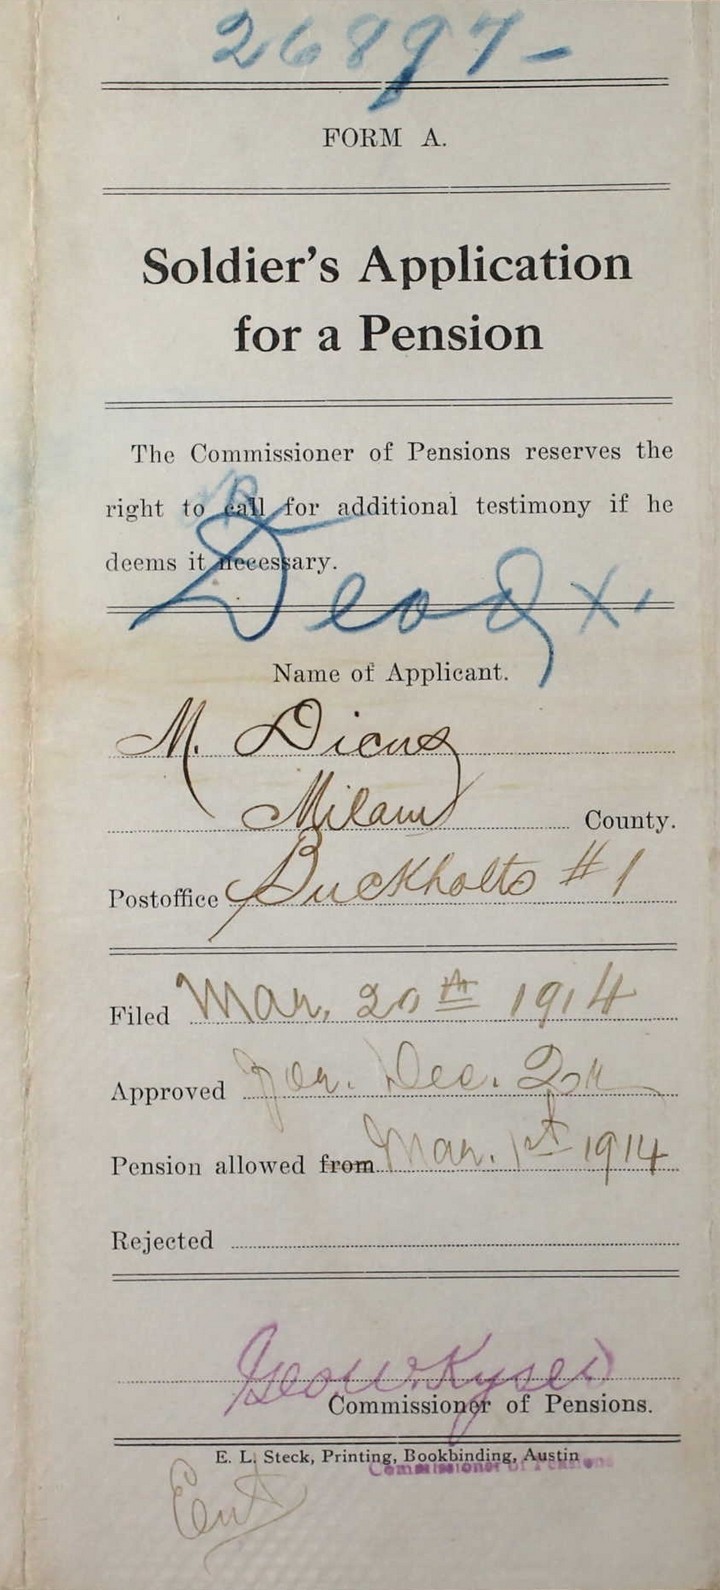 26897-
FORM A.
Soldier's Application
for a Pension
The Commissioner of Pensions reserves the
right to call for additional testimony if he
deems it necessary.
Dead X
Name of Applicant.
M. Dicus
Milam County.
Postoffice Buckholts #1
Filed Mar. 20th 1914
Approved Dec.
Pension allowed from Mar. 1st 1914
Rejected
Geo W. Kyser
Commissioner of Pensions.
E. L. Steck, Printing, Bookbinding, Austin
Commissioner of Pensions
Ent